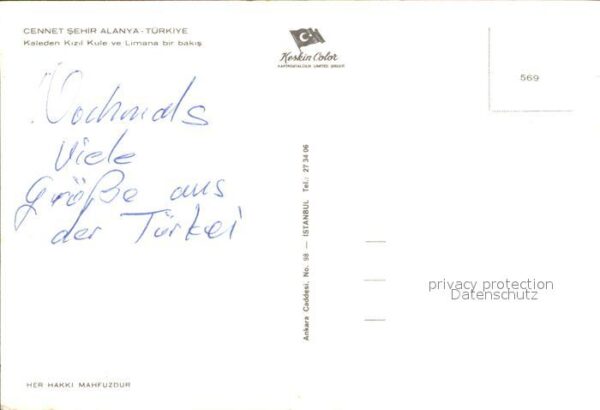 CENNET ŞEHİR ALANYA - TÜRKİYE
Kaleden Kızıl Kule ve Limana bir bakış
Nochmals
viele
Größe aus
der Türkei
HER HAKKI MAHFUZDUR
Keskin Color
KARTPOSTALCILIK LIMITED ŞİRKETİ
Ankara Caddesi, No. 98 — İSTANBUL Tel.: 27 34 06
569
privacy protection
Datenschutz